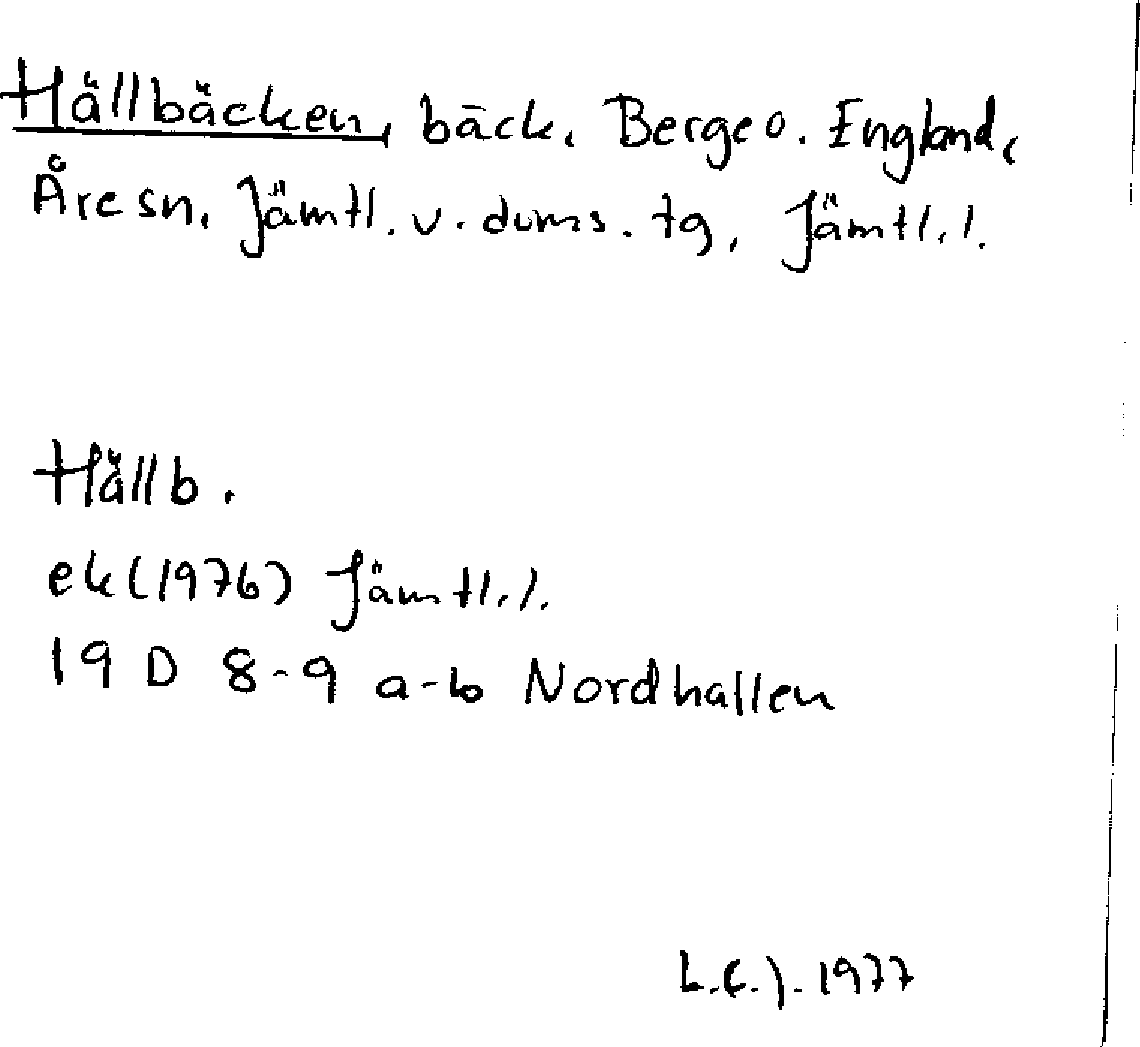 Hällbäcken, bäck, Berge o. England,
Åre sn, Jämtl. v. doms. tg, Jämtl. l.
Hällb.
ek (1976) Jämtl. l.
19 D 8-9 a-b Nordhallen
L.E.J. 1977